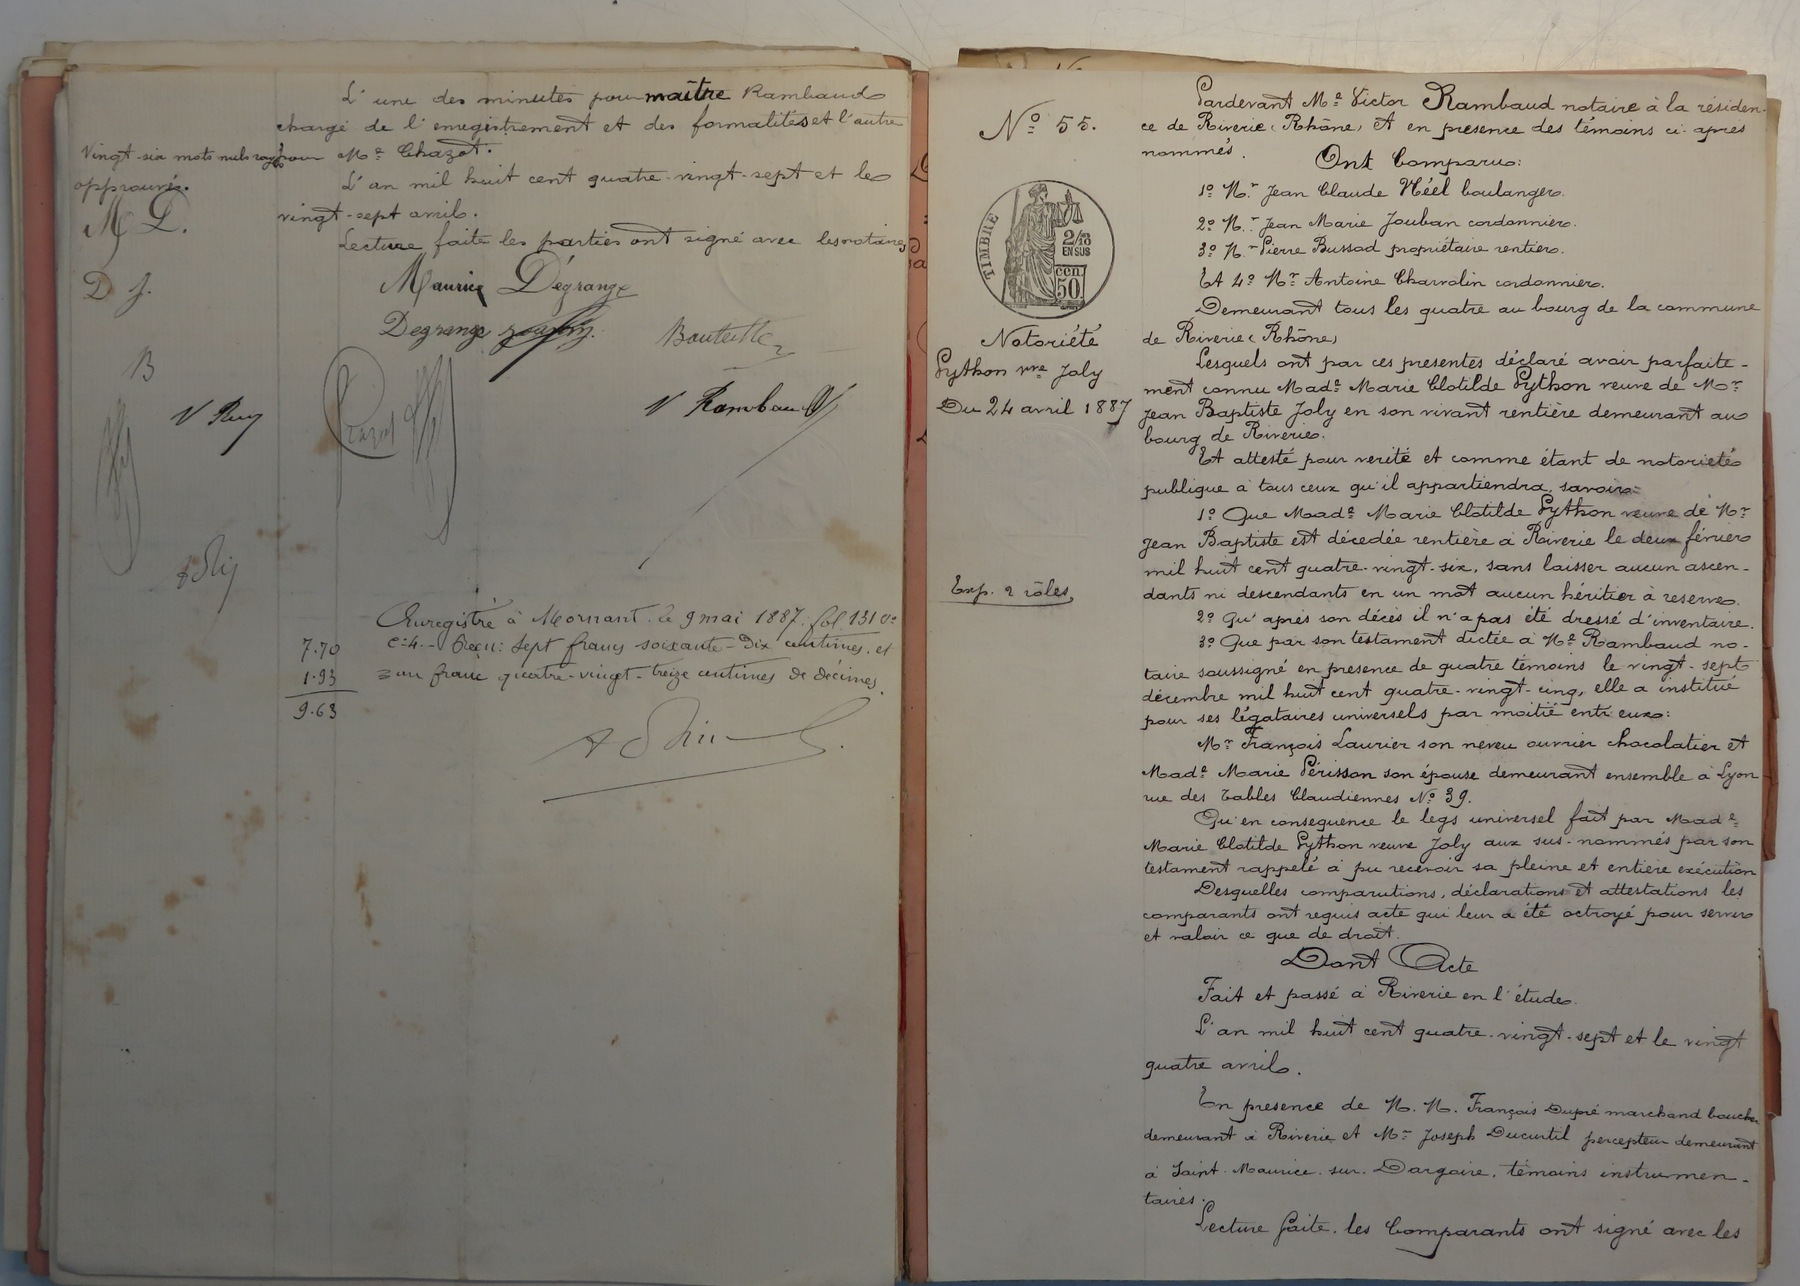 L'une des minutes pour maître Rambaud
chargé de l'enregistrement et des formalités et l'autre
pour Me Chazot.
Vingt-six mots nuls rayés
approuvés.
M D.
D J.
B
V Rey
L'an mil huit cent quatre-vingt-sept et le
vingt-sept avril.
Lecture faite les parties ont signé avec les notaires
Maurice Dégrange
Degrange Bouteille
Chazot V Rambaud
Enregistré à Mornant, le 9 mai 1887, fol. 131 Vo
c: 4. - Reçu: Sept francs soixante-dix centimes, et
un franc quatre-vingt-treize centimes de décimes.
7.70
1.93
9.63
No 55.
TIMBRE
2/10
EN SUS
50 cen
Notoriété
Python vve Joly
Du 24 avril 1887
Exp. 2 rôles.
Pardevant Me Victor Rambaud notaire à la résiden-
ce de Riverie (Rhône) Et en presence des témoins ci-après
nommés.
Ont Comparu:
1o Mr Jean Claude Néel boulanger.
2o Mr Jean Marie Jouban cordonnier.
3o Mr Pierre Bussod propriétaire rentier.
Et 4o Mr Antoine Charvolin cordonnier.
Demeurant tous les quatre au bourg de la commune
de Riverie (Rhône)
Lesquels ont par ces presentes déclaré avoir parfaite-
ment connu Made Marie Clotilde Python veuve de Mr
Jean Baptiste Joly en son vivant rentière demeurant au
bourg de Riverie.
Et attesté pour verité et comme étant de notorieté
publique à tous ceux qu'il appartiendra, savoir:
1o Que Made Marie Clotilde Python veuve de Mr
Jean Baptiste est décedée rentière à Riverie le deux février
mil huit cent quatre-vingt-six, sans laisser aucun ascen-
dants ni descendants en un mot aucun héritier à reserve.
2o Qu'après son décès il n'a pas été dressé d'inventaire.
3o Que par son testament dictée à Me Rambaud no-
taire soussigné en presence de quatre témoins le vingt-sept
décembre mil huit cent quatre-vingt-cinq, elle a institué
pour ses légataires universels par moitié entr'eux:
Mr François Laurier son neveu ouvrier chocolatier et
Made Marie Périsson son épouse demeurant ensemble à Lyon
rue des Tables Claudiennes No 39.
Qu'en consequence le legs universel fait par Made
Marie Clotilde Python veuve Joly aux sus-nommés par son
testament rappelé à pu recevoir sa pleine et entière exécution
Desquelles comparutions, déclarations et attestations les
comparants ont requis acte qui leur a été octroyé pour servir
et valoir ce que de droit.
Dont Acte
Fait et passé à Riverie en l'étude.
L'an mil huit cent quatre-vingt-sept et le vingt
quatre avril.
En presence de M. M. François Dupré marchand boucher
demeurant à Riverie et Mr Joseph Ducurtil percepteur demeurant
à Saint-Maurice-sur-Dargoire, témoins instrumen-
taires.
Lecture faite, les Comparants ont signé avec les